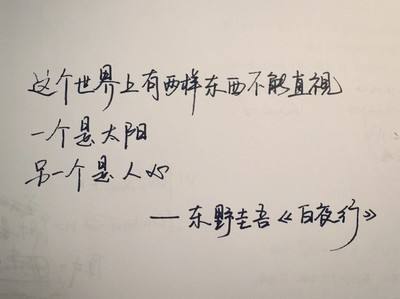 这个世界上有两样东西不能直视
一个是太阳
另一个是人心
——东野圭吾《白夜行》